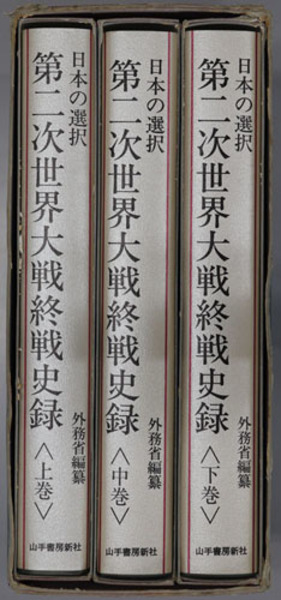 日本の選択
第二次世界大戦終戦史録
外務省編纂
〈上巻〉
山手書房新社
日本の選択
第二次世界大戦終戦史録
外務省編纂
〈中巻〉
山手書房新社
日本の選択
第二次世界大戦終戦史録
外務省編纂
〈下巻〉
山手書房新社